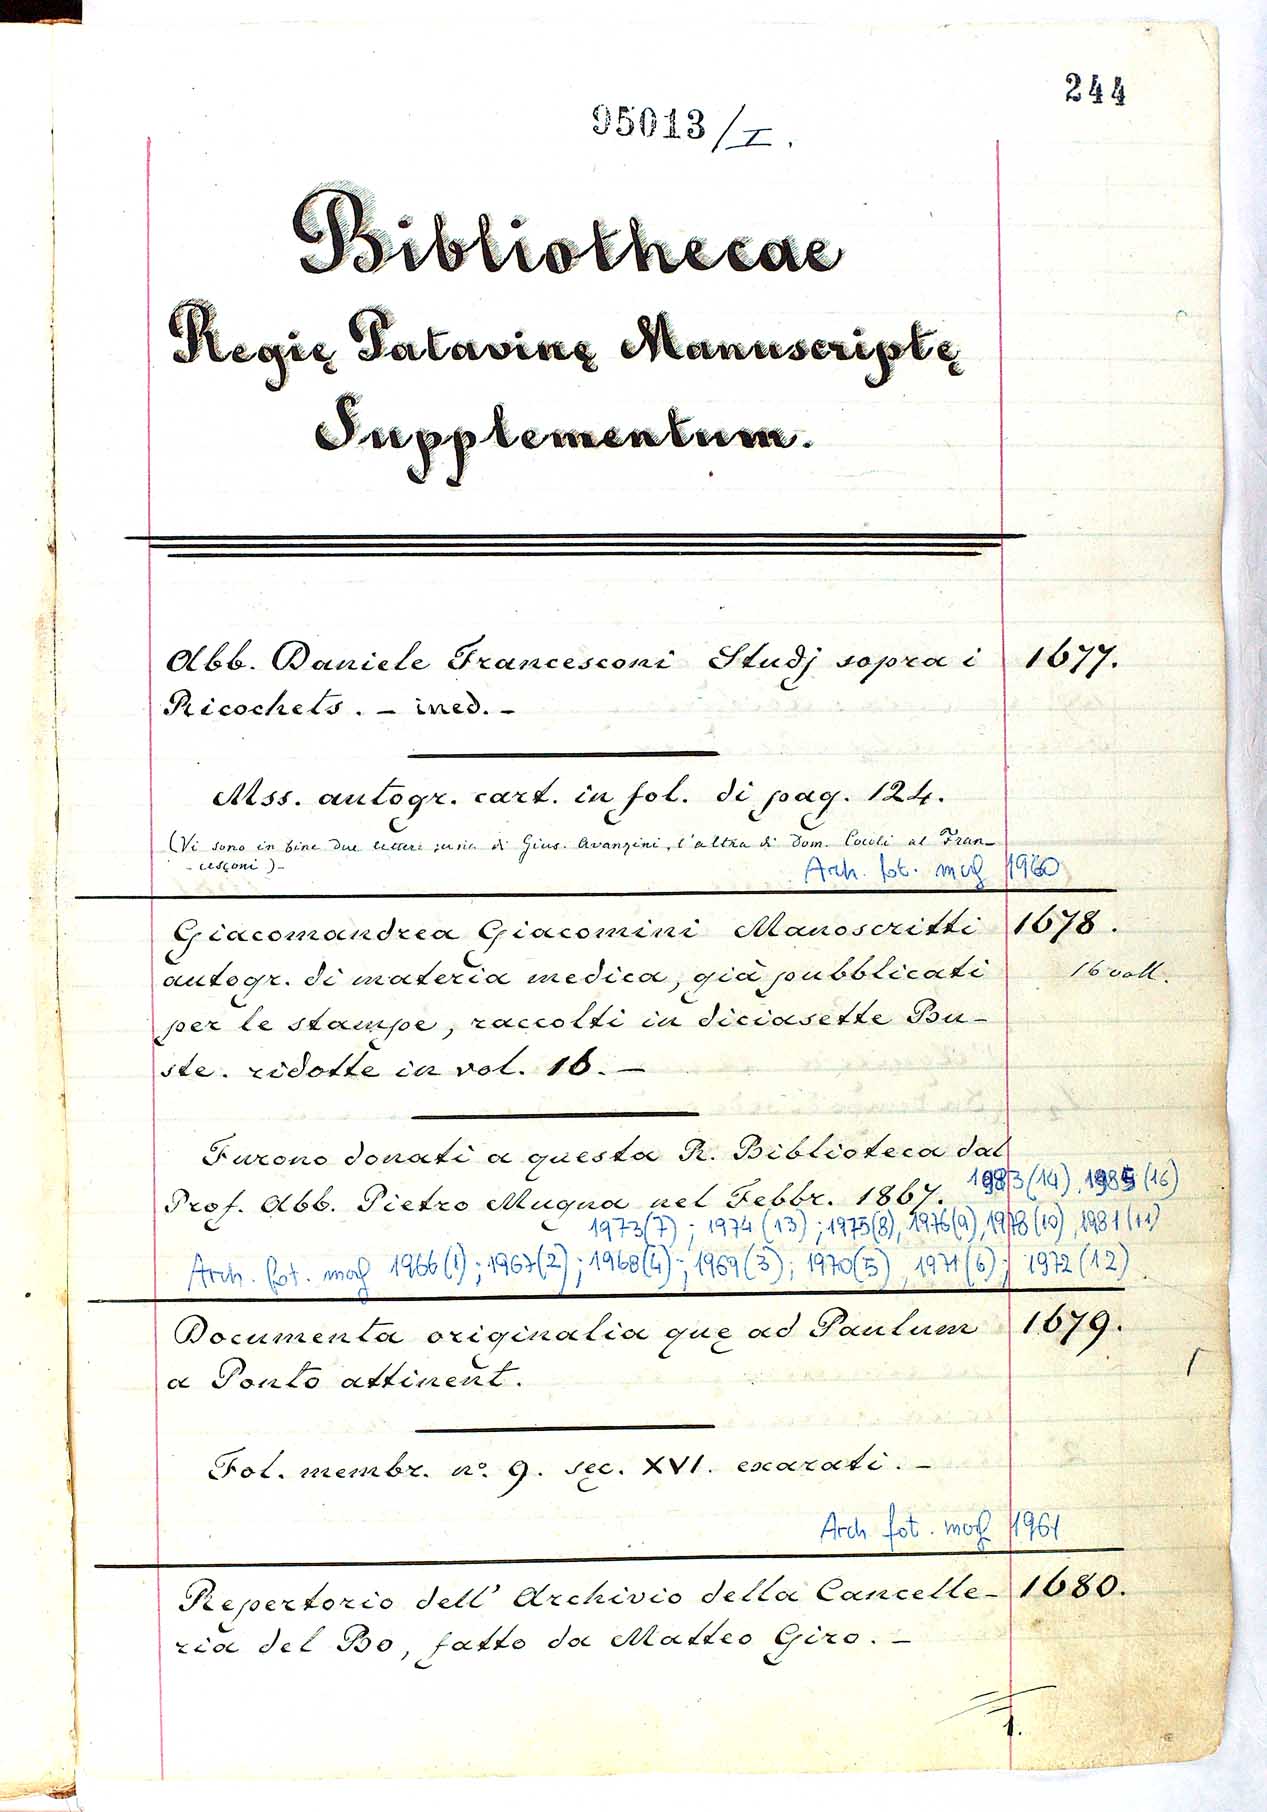 244
95013/I.
Bibliothecae
Regię Patavinę Manuscriptę
Supplementum.
Abb. Daniele Francesconi Studj sopra i 1677.
Ricochets. – ined. –
Mss. autogr. cart. in fol. di pag. 124.
(Vi sono in fine due lettere, una di Gius. Avanzini, l'altra di Dom. Cocoli al Fran-
cesconi) –
Arch. fot. 1960
Giacomandrea Giacomini Manoscritti 1678.
autogr. di materia medica, già pubblicati 16 voll.
per le stampe, raccolti in diciasette Bu-
ste. ridotte in vol. 16. –
Furono donati a questa R. Biblioteca dal
Prof. Abb. Pietro Mugna nel Febbr. 1867. 1983(14), 1985(16)
1973(7); 1974(13); 1975(8), 1976(9), 1978(10), 1981(11)
Arch. fot. 1966(1); 1967(2); 1968(4); 1969(3); 1970(5), 1971(6); 1972(12)
Documenta originalia quę ad Paulum 1679.
a Ponto attinent.
Fol. membr. nº. 9. sęc. XVI. exarati. –
Arch fot. 1961
Repertorio dell' Archivio della Cancelle- 1680.
ria del Bo, fatto da Matteo Giro. –
1.